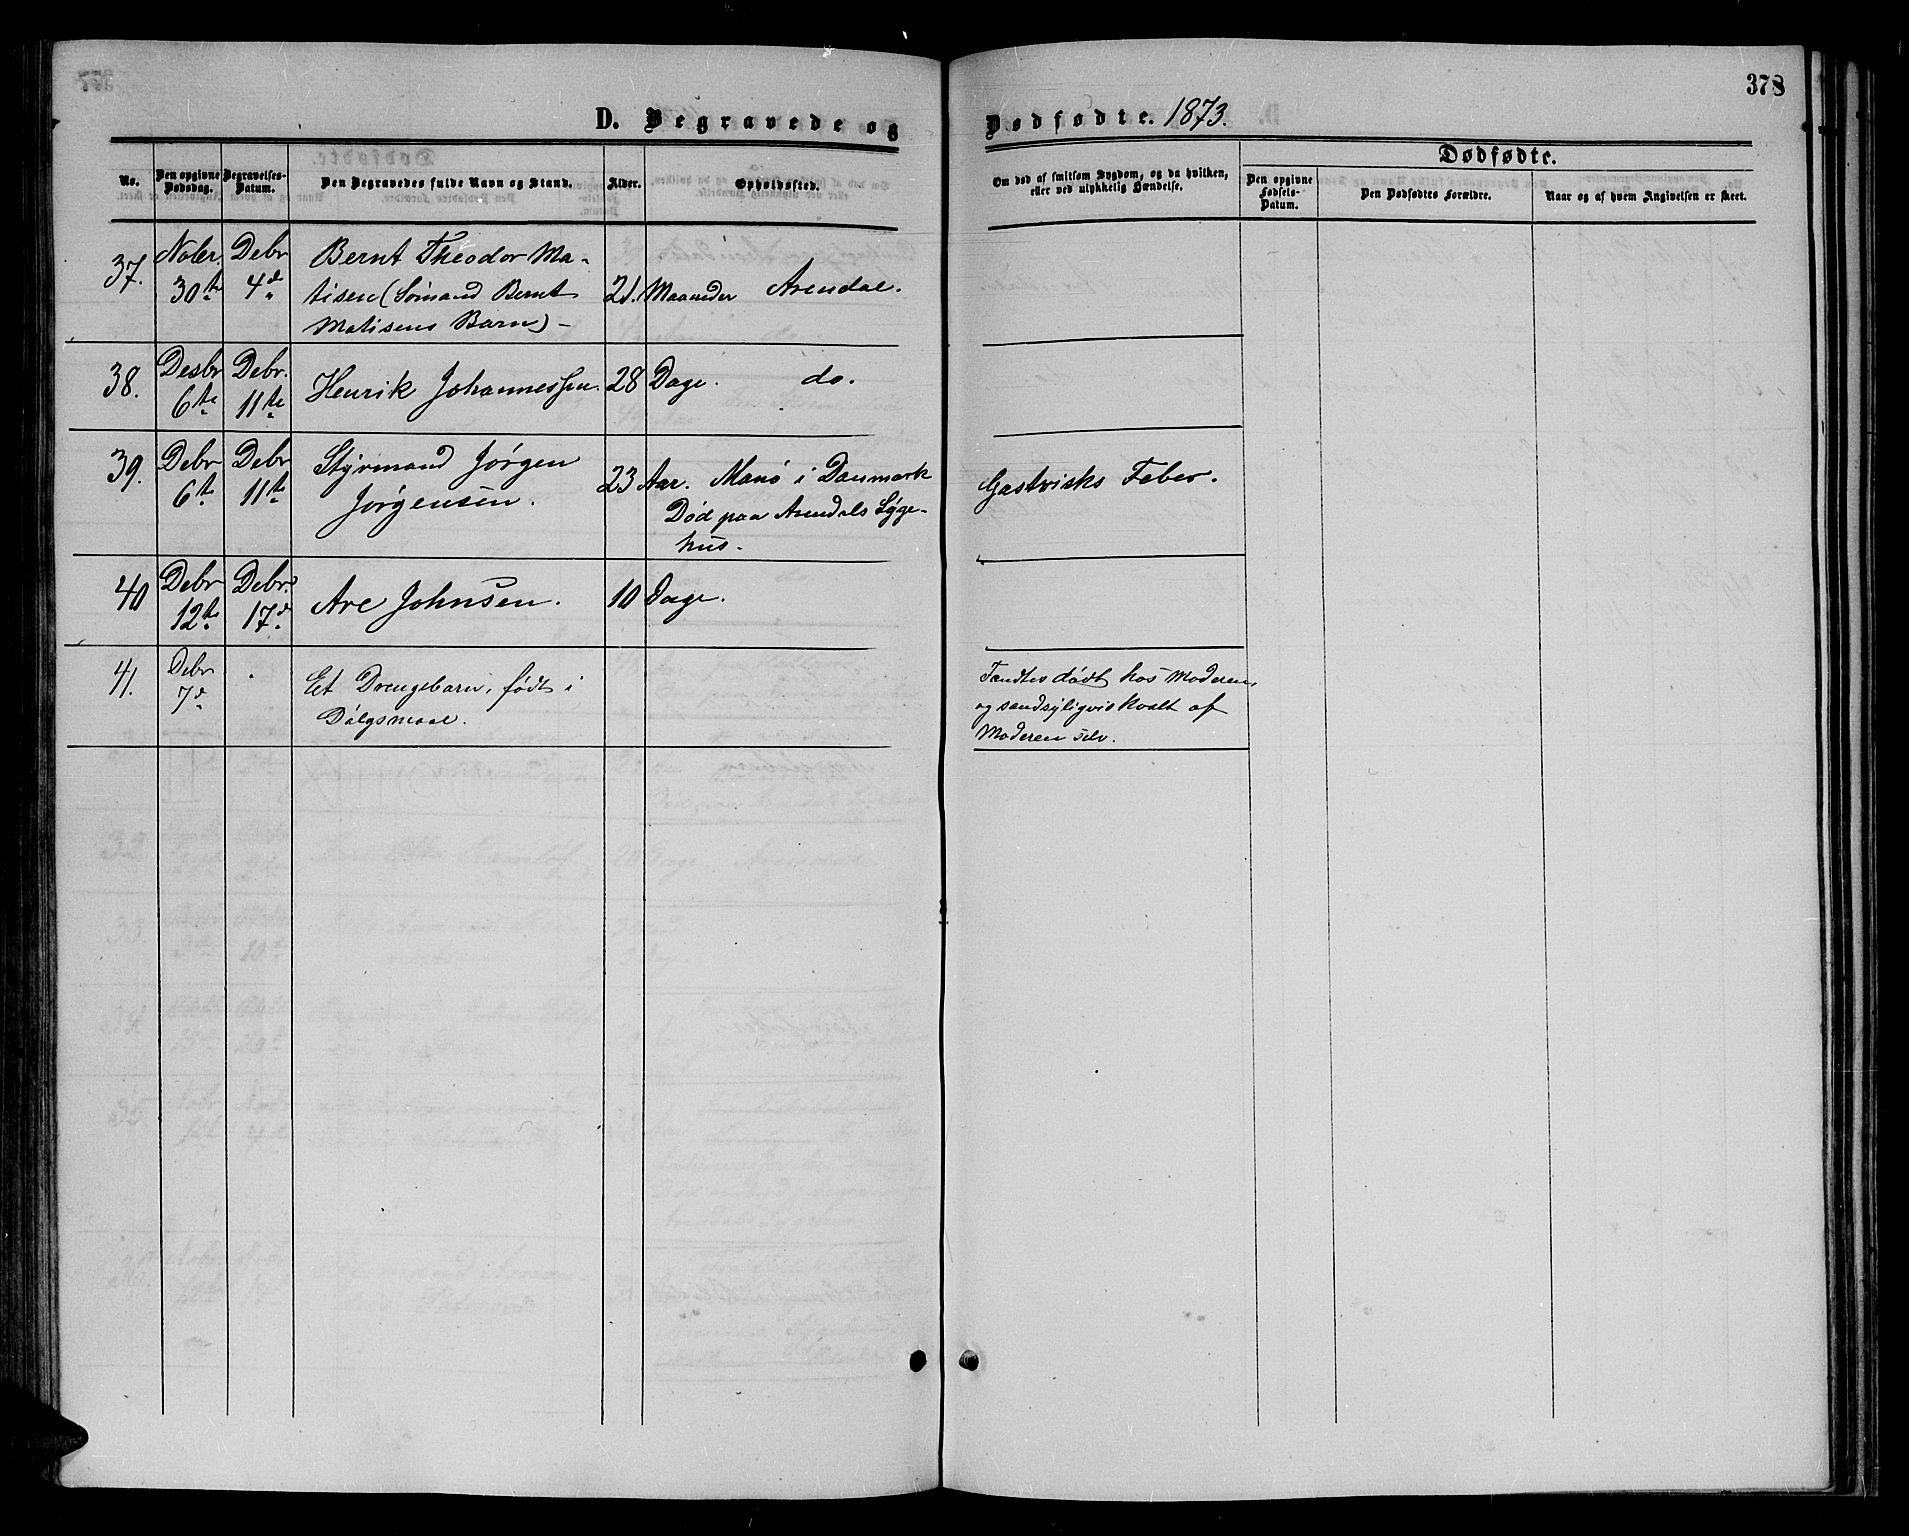 378
D. Begravede og Dødfødte. 1873.
No.
Den opgivne Dødsdag.
Begravelses-Datum.
Den Begravedes fulde Navn og Stand.
Alder.
Opholdssted.
Om død af smitsom Sygdom, og da hvilken, eller ved ulykkelig Hændelse.
Dødfødte.
Den opgivne Fødsels-Datum.
Den Dødfødtes Forældre.
Naar og af hvem Angivelsen er skeet.
37. Nober 30te Debr 4de Bernt Theodor Ma-
tisen (Sömand Bernt 21. Maaneder Arendal.
Matisens Barn) -
38. Desbr 6te Debr. 11te Henrik Johannessen. 28 Dage. do.
39. Debr 6te Debr 11te Styrmand Jörgen
Jörgensen. 23 Aar. Manö i Danmark
Död paa Arendals Syge-
hus.
Gastrisks Feber.
40 Debr 12te Debr. 17de Are Johnsen. 10 Dage.
41. Debr 7de
Et Drengebarn, födt i
Dölgsmaal.
Fandtes dödt hos Moderen,
og sandsyligvis kvalt af
Moderen selv.